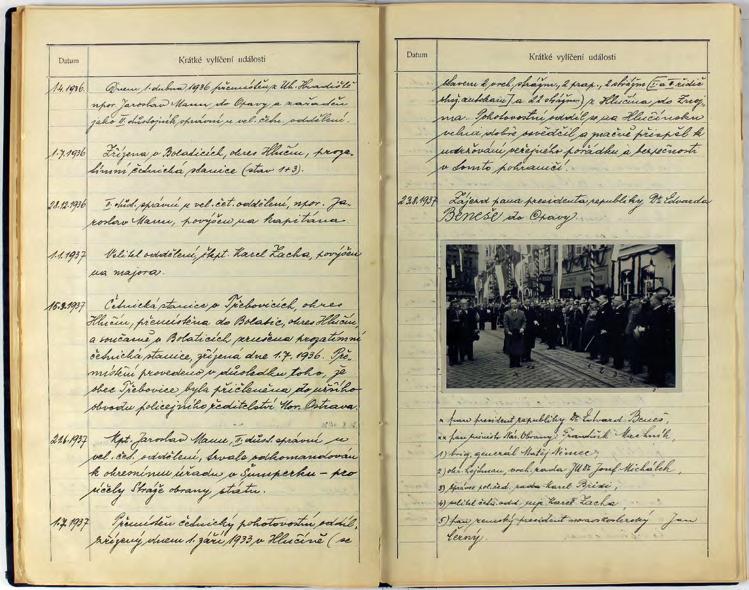 Datum
Krátké vylíčení události
1.4.1936. Dnem 1. dubna 1936 přemístěn z Uh. Hradiště
npor. Jaroslav Mann do Opavy a zařaděn
jako II. důstojník správní u vel. četn. oddělení.
1.7.1936 Zřízena v Bolaticích, okres Hlučín, proza-
tímní četnická stanice (stav 1+3).
28.12.1936 II. důst. správní u vel. čet. oddělení, npor. Ja-
roslav Mann, povýšen na kapitána.
1.1.1937 Velitel oddělení, škpt. Karel Zacha, povýšen
na majora.
15.3.1937 Četnická stanice v Třebovicích, okres
Hlučín, přemístěna do Bolatic, okres Hlučín
a současně v Bolaticích, zrušena prozatímní
četnická stanice, zřízená dne 1.7.1936. Pře-
místění provedeno v důsledku toho, že
obec Třebovice byla přičleněna do užšího
obvodu policejního ředitelství Mor. Ostrava.
Kpt. Jaroslav Mann, II. důst. správní u
vel. čet. oddělení, trvale odkomandován
k okresnímu úřadu v Šumperku – pro
účely Stráže obrany státu.
1.7.1937 Přemístěn četnický pohotovostní oddíl,
zřízený dnem 1. září 1933 v Hlučíně (se
Datum
Krátké vylíčení události
stavem 2 vrch. strážm., 2 prap., 2 strážm. (II a II řidič
stráj. autokar) a 22 strážm.) z Hlučína do Zno-
jma. Pohotovostní oddíl se na Hlučínsku
velmi dobře osvědčil a značně přispěl k
udržování veřejného pořádku a bezpečnosti
v tomto pohraničí.
23.8.1937 Zájezd pana presidenta republiky Dr. Edvarda
Beneše do Opavy.
x pan president republiky Dr. Edvard Beneš,
xx pan ministr Nár. Obrany František Machník,
1) brig. generál Matěj Němec,
2) okr. hejtman, vrch. rada JUDr. Josef Michálek,
3) správce polic. řed., rada Karel
4) velitel četn. odd. mjr. Karel Zacha
5) pan zemský president moravskoslezský Jan
Černý.